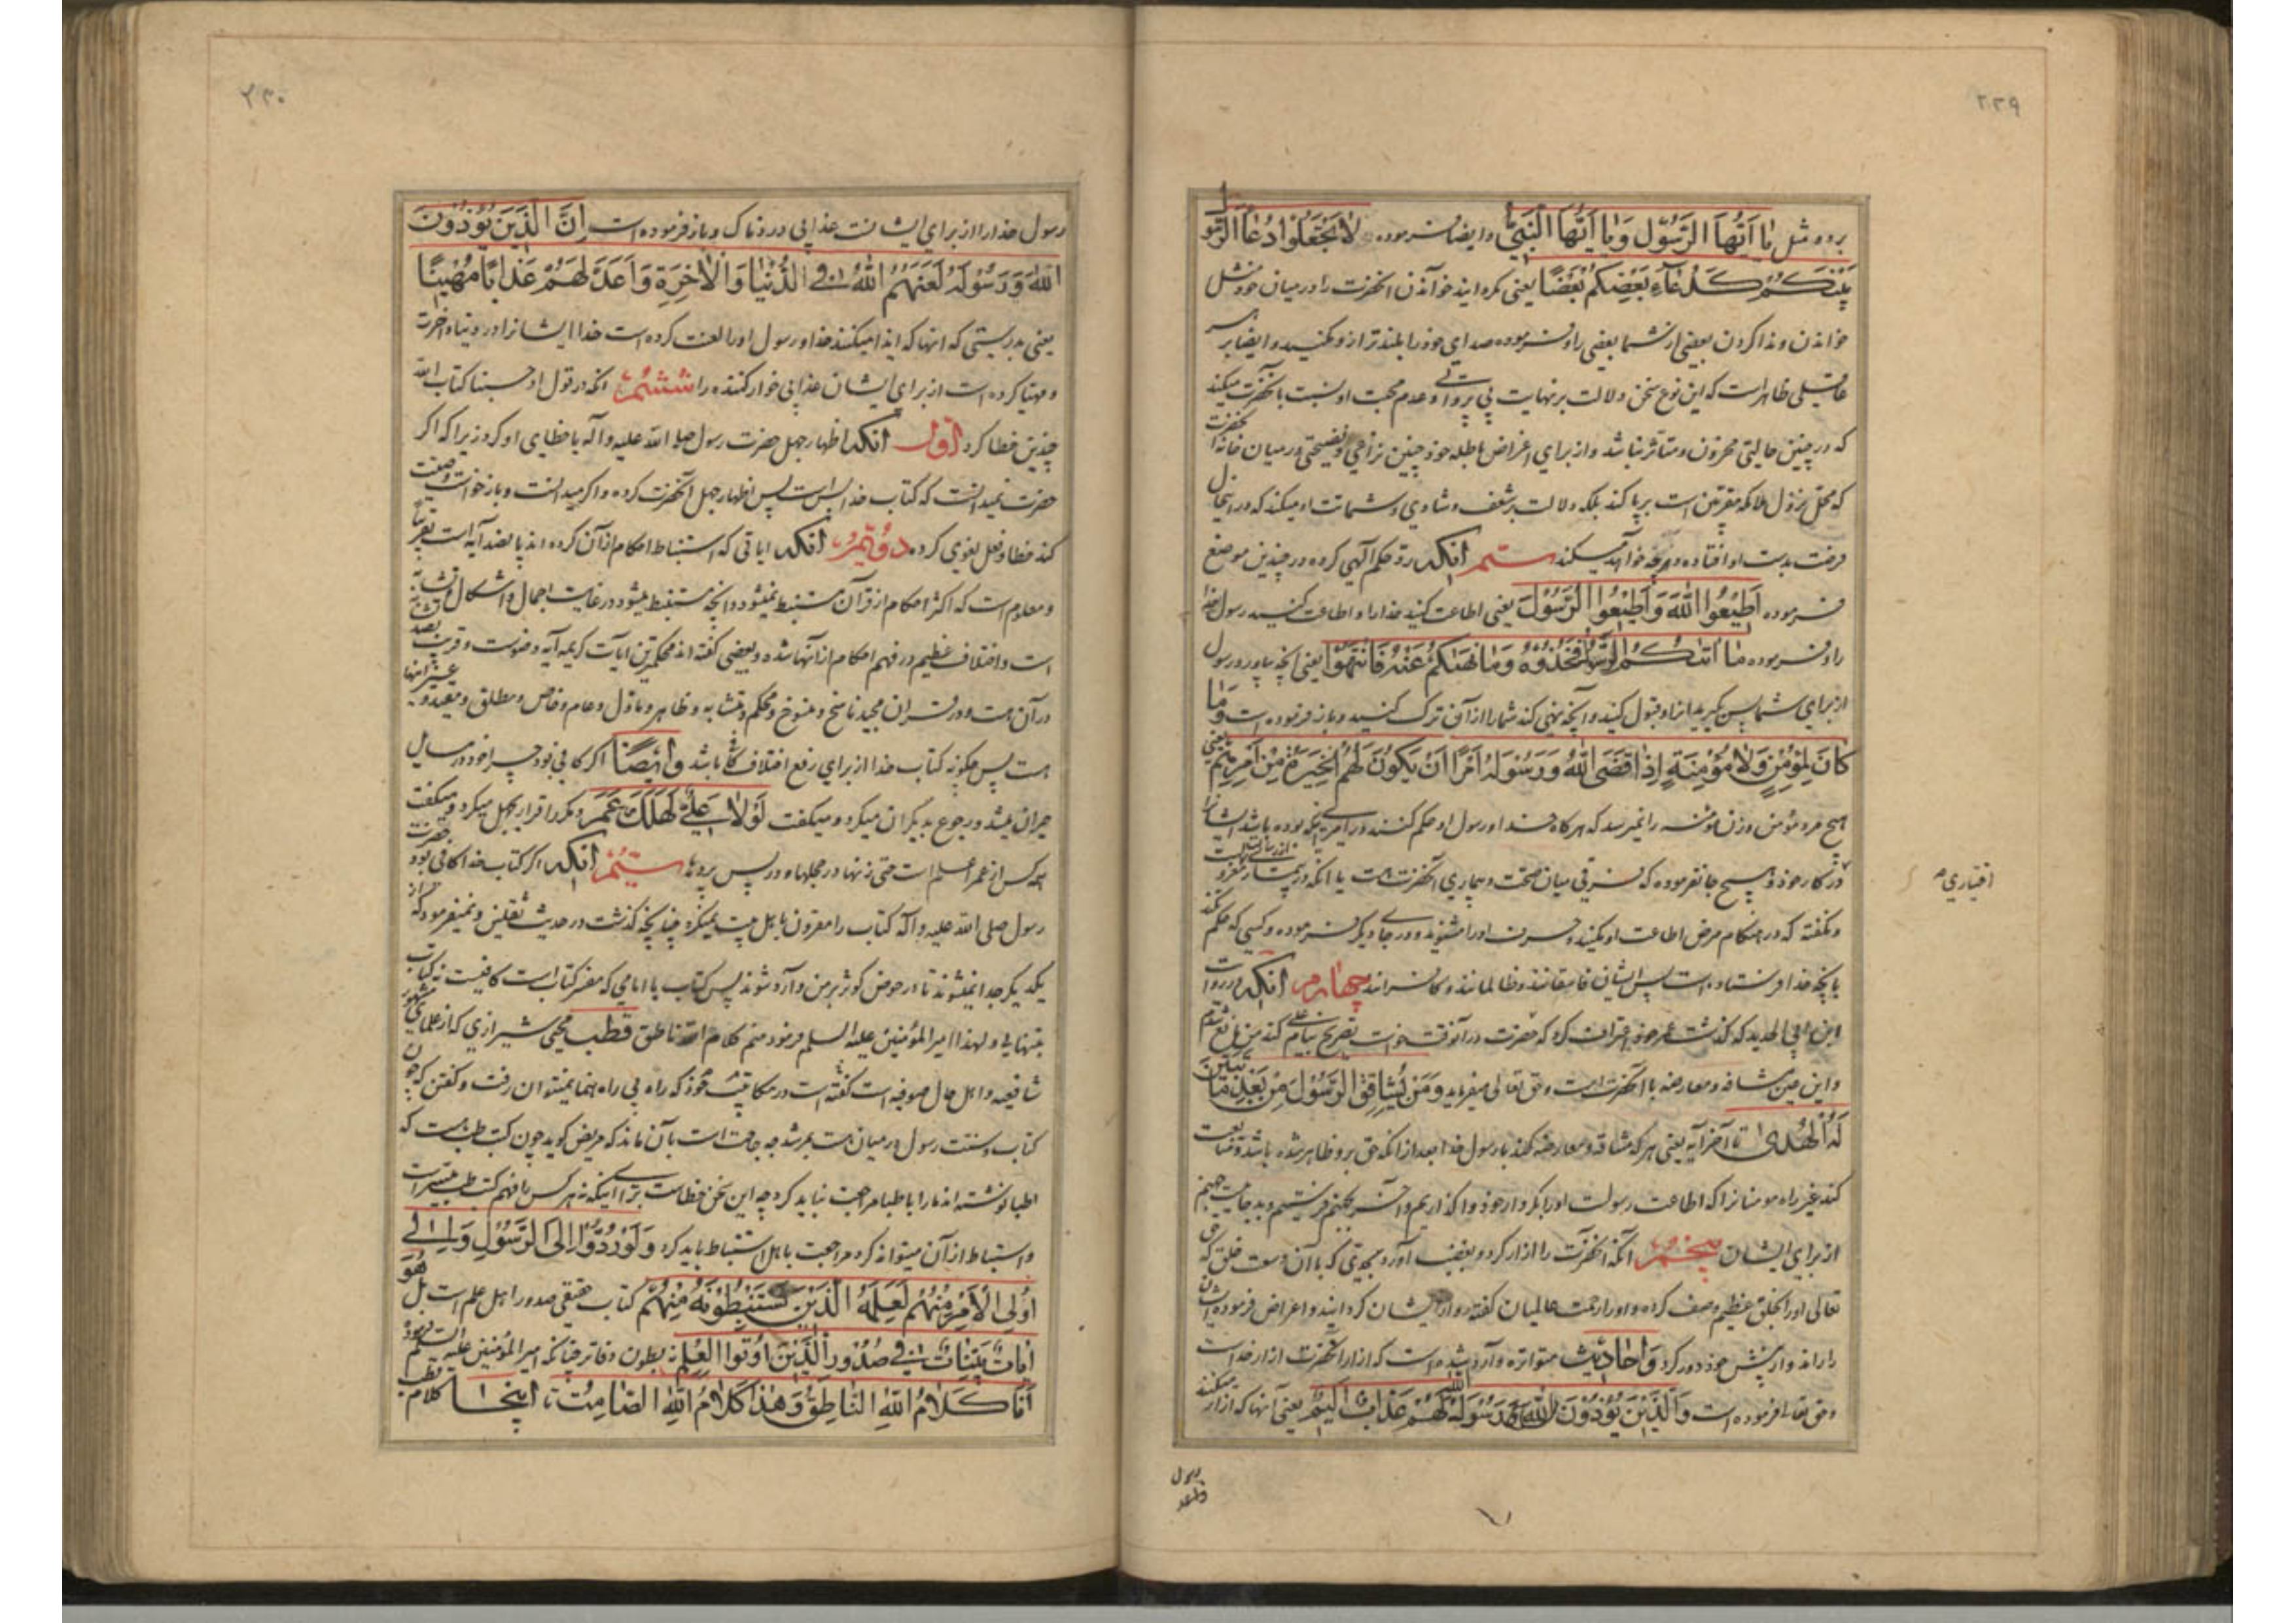 ۲۲۹
برده مثل یا اَیُّهَا الرَّسُوْل وَیا اَیُّهَا النَّبِیُّ و ایضا فرموده لاتَجْعَلُوْا دُعٰاَۤءَ الرَّسُوْل
بَیْنَکُمْ کَدُعٰاۤءِ بَعْضِکُمْ بَعْضًا یعنی مکردانید خواندن انحضرت را در میان خود مثل
خواندن و ندا کردن بعضی از شما بعضی را و فرموده صدای خود را بلندتر از و مکنید و ایضا بر هر
عاقلی ظاهر است که این نوع سخن دلالت بر نهایت بی پروائی و عدم محبت او نسبت بانحضرت میکند
که در چنین حالتی محزون و متاثر نباشد و از برای اغراض باطله خود چنین نزاعی و فضیحتی در میان خانه انحضرت
که محل نزول ملائکه مقربین است برپا کند بلکه دلالت بر شعف و شادی و شماتت او میکند که در اینحال
فرصت بدست او افتاده و هرچه خواهد میکند سیّم انکه رد حکم آلهی کرده در چندین موضع
فرموده اَطِیْعُوا اللّٰهَ وَاَطِیْعُوا الرَّسُوْلَ یعنی اطاعت کنید خدا را و اطاعت کنید رسول خدا
را و فرموده ما اٰتٰىکُمُ الرَّسُوْلُ فَخُذُوْهُ وَمَا نَهٰىکُمْ عَنْهُ فَانْتَهُوْا یعنی انچه بیاورد رسول
از برای شما پس بگیرید انرا و قبول کنید و آنچه نهی کند شما را از آن ترک کنید و باز فرموده است وَمٰا
کٰانَ لِمُؤْمِنٍ وَلاٰ مُؤْمِنَةٍ اِذٰا قَضَی اللّٰهُ وَرَسُوْلُهُ اَمْرًا اَنْ یَکُوْنَ لَهُمُ الْخِیَرَةُ مِنْ اَمْرِهِمْ یعنی
هیچ مرد مؤمن و زن مؤمنه را نمیرسد که هرگاه خدا و رسول او حکم کنند در امری انکه بوده باشد ایشانرا
در کار خود و هیچ جا نفرموده که فرقی میان صحت و بیماری آنحضرت هست
اختیاری
و نگفته که در هنگام مرض اطاعت او نکنید و حرف او را مشنوید و در جای دیگر فرموده و کسی که حکم نکند
بانچه خدا فرستاده است پس ایشان فاسقانند و ظالمانند و کافرانند چهارم انکه در روایت
ابن ابی الحدید که گذشت عمر خود اعتراف کرد که حضرت در آنوقت خواست تصریح بنام علی کند من مانع شدم
و این عین مشاقه و معارضه با انحضرت است و حق تعالی میفرماید وَمَنْ یُشٰاقِقِ الرَّسُوْلَ مِنْ بَعْدِ مٰا تَبَیَّنَ
لَهُ الْهُدٰی تا آخر آیه یعنی هر که مشاقه و معارضه کند با رسول خدا بعد از انکه حق بر و ظاهر شده باشد و متابعت
کند غیر راه مومنانرا که اطاعت رسولست او را بکردار خود واگذاریم و آخر بجهنم فرستیم و بد جائیست جهنم
از برای ایشان پنجم انکه انحضرت را ازار کرد و بغضب آورد بحدیتی که با آن وسعت خلق که حق
تعالی او را بخلق عظیم وصف کرده و او را رحمت عالمیان گفته رو از ایشان گردانید و اعراض فرمود ایشان
را راند و از پیش خود دور کرد وَاحادیث متواتره وارد شده است که ازار انحضرت ازار خداست
و حق تعالی فرموده است وَالَّذِیْنَ یُؤْذُوْنَ رَسُوْلَ اللّٰهِ لَهُمْ عَذٰابٌ اَلِیْمٌ یعنی آنها که ازار میکنند
رسول
۲۳۰
رسول خدا را از برای ایشانست عذابی دردناک و باز فرموده است اِنَّ الَّذِیْنَ یُؤْذُوْنَ
اللّٰهَ وَرَسُوْلَهُ لَعَنَهُمُ اللّٰهُ فِی الدُّنْیٰا وَالْاٰخِرَةِ وَاَعَدَّ لَهُمْ عَذٰابًا مُهِیْنًا
یعنی بدرستی که انها که ایذا میکنند خدا و رسول او را لعنت کرده است خدا ایشانرا در دنیا و اخرت
و مهیا کرده است از برای ایشان عذابی خوارکننده را ششم انکه در قول او حسبنا کتاب اللّه
چندین خطا کرد اوّل انکه اظهار جهل حضرت رسول صلی اللّه علیه و آله یا خطای او کرد زیرا که اگر
حضرت نمیدانست که کتاب خدا بس است پس اظهار جهل آنحضرت کرده و اگر میدانست و باز خواست وصیت
کند خطا و فعل لغوی کرده دویّم انکه ایاتی که استنباط احکام از آن کرده اند پانصد آیه است تقریبا
و معلوم است که اکثر احکام از قرآن مستنبط نمیشود و انچه مستنبط میشود در غایت اجمال و اشکال و تشابه
است و اختلاف عظیم در فهم احکام از آنها شده و بعضی گفته اند محکمترین ایات کریمه آیه وضوست و قریب بصد
در آن هست و در قران مجید ناسخ و منسوخ و محکم و متشابه و ظاهر و ماول و عام و خاص و مطلق و مقید و غیر اینها
هست پس چگونه کتاب خدا از برای رفع اختلاف کافی باشد وایضًا اگر کافی بود چرا خود در مسایل
حیران میشد و رجوع بدیگران میکرد و میگفت لَوْلٰا عَلِیٌّ لَهَلَکَ عُمَر و مکرر اقرار بجهل میکرد و میگفت
همه کس از عمر اعلم است حتی زنها در حجلها و در پس پردها سیّم انکه اگر کتاب خدا کافی بود حضرت
رسول صلی اللّه علیه و آله کتاب را مقرون باهل بیت نمیکرد چنانچه گذشت در حدیث ثقلین و نمیفرمود که
یکدیگر جدا نمیشوند تا در حوض کوثر بر من وارد شوند پس کتاب با امامی که مفسر کتاب است کافیست نه کتاب
بتنهایی و لهذا امیرالمؤمنین علیه السلم فرمود منم کلام اللّه ناطق قطب محیی شیرازی که از علمای مشهور
شافعیه و اهل حال صوفیه است گفته است در مکاتیب خود که راه بی راه نما نمیتوان رفت و گفتن که چون
کتاب و سنت رسول در میان هست بمرشد چه حاجت است بآن ماند که مریض گوید چون کتب طب هست که
اطبا نوشته اند ما را باطبا مراجعت نباید کرد چه این سخن خطاست برای اینکه نه هر کس را فهم کتب طب میسر است
و استنباط از آن میتواند کرد مراجعت باهل استنباط باید کرد وَلَوْ رُدُّوْهُ اِلَی الرَّسُوْلِ وَاِلٰی
اُولِی الْاَمْرِ مِنْهُمْ لَعَلِمَهُ الَّذِیْنَ یَسْتَنْبِطُوْنَهُ مِنْهُمْ کتاب حقیقی صدور اهل علم است بَلْ هُوَ
اٰیٰاتٌ بَیِّنٰاتٌ فِیْ صُدُوْرِ الَّذِیْنَ اُوْتُوا الْعِلْمَ نه بطون دفاتر چنانکه امیرالمؤمنین علیه السلم فرمود
اَنَا کَلَامُ اللّٰهِ النّٰاطِقُ وَهٰذَا کَلَامُ اللّٰهِ الصّٰامِتُ اینجا کلام قطب